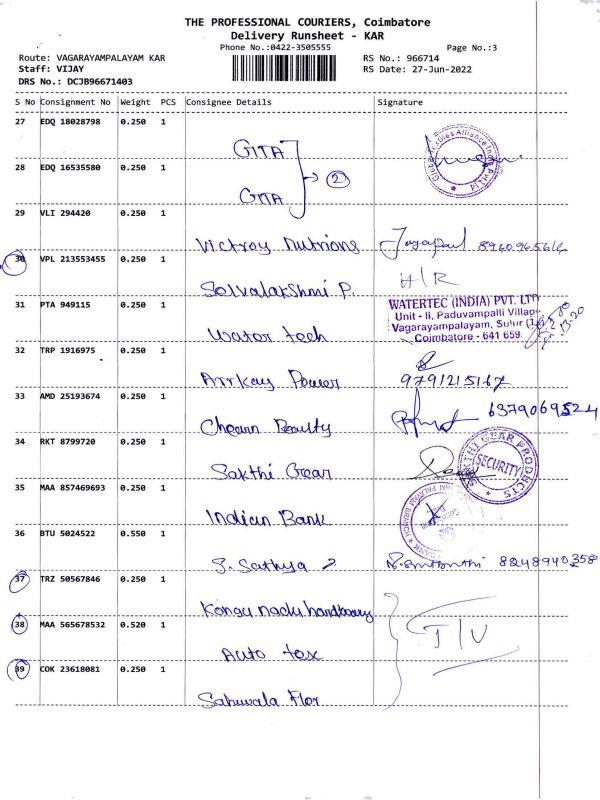 THE PROFESSIONAL COURIERS, Coimbatore
Delivery Runsheet - KAR
Phone No.:0422-3505555
Page No.:3
Route: VAGARAYAMPALAYAM KAR
RS No.: 966714
Staff: VIJAY
RS Date: 27-Jun-2022
DRS No.: DCJB96671403
S No Consignment No Weight PCS Consignee Details Signature
27 EDQ 18028798 0.250 1
GITA
28 EDQ 16535580 0.250 1
GITA
2
29 VLI 294420 0.250 1
Victroy Nutrions
30 VPL 213553455 0.250 1
H/R
Selvalakshmi P.
31 PTA 949115 0.250 1
WATERTEC (INDIA) PVT. LTD
Unit - II, Paduvampalli Village
Vagarayampalayam, Sulur
Coimbatore - 641 659.
Water tech
32 TRP 1916975 0.250 1
Arrkay Power 9791215167
33 AMD 25193674 0.250 1
6379069524
Cheann Beauty
34 RKT 8799720 0.250 1
SAKTHI GEAR PRODUCTS
SECURITY
Sakthi Gear
35 MAA 857469693 0.250 1
Indian Bank
36 BTU 5024522 0.550 1
S. Sathya 8248940358
37 TRZ 50567846 0.250 1
Kongu nadu
38 MAA 565678532 0.520 1
Auto tex
39 COK 23618081 0.250 1
Sahuwala Flor